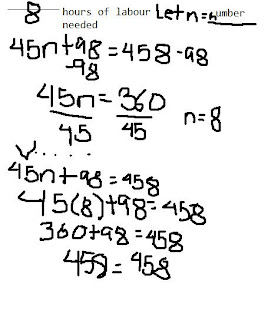 8 hours of labour needed Let n = number
45n+98 = 458 -98
-98
45n = 360
45 45 n = 8
✓.....
45n+98 = 458
45(8)+98 = 458
360+98 = 458
458 = 458